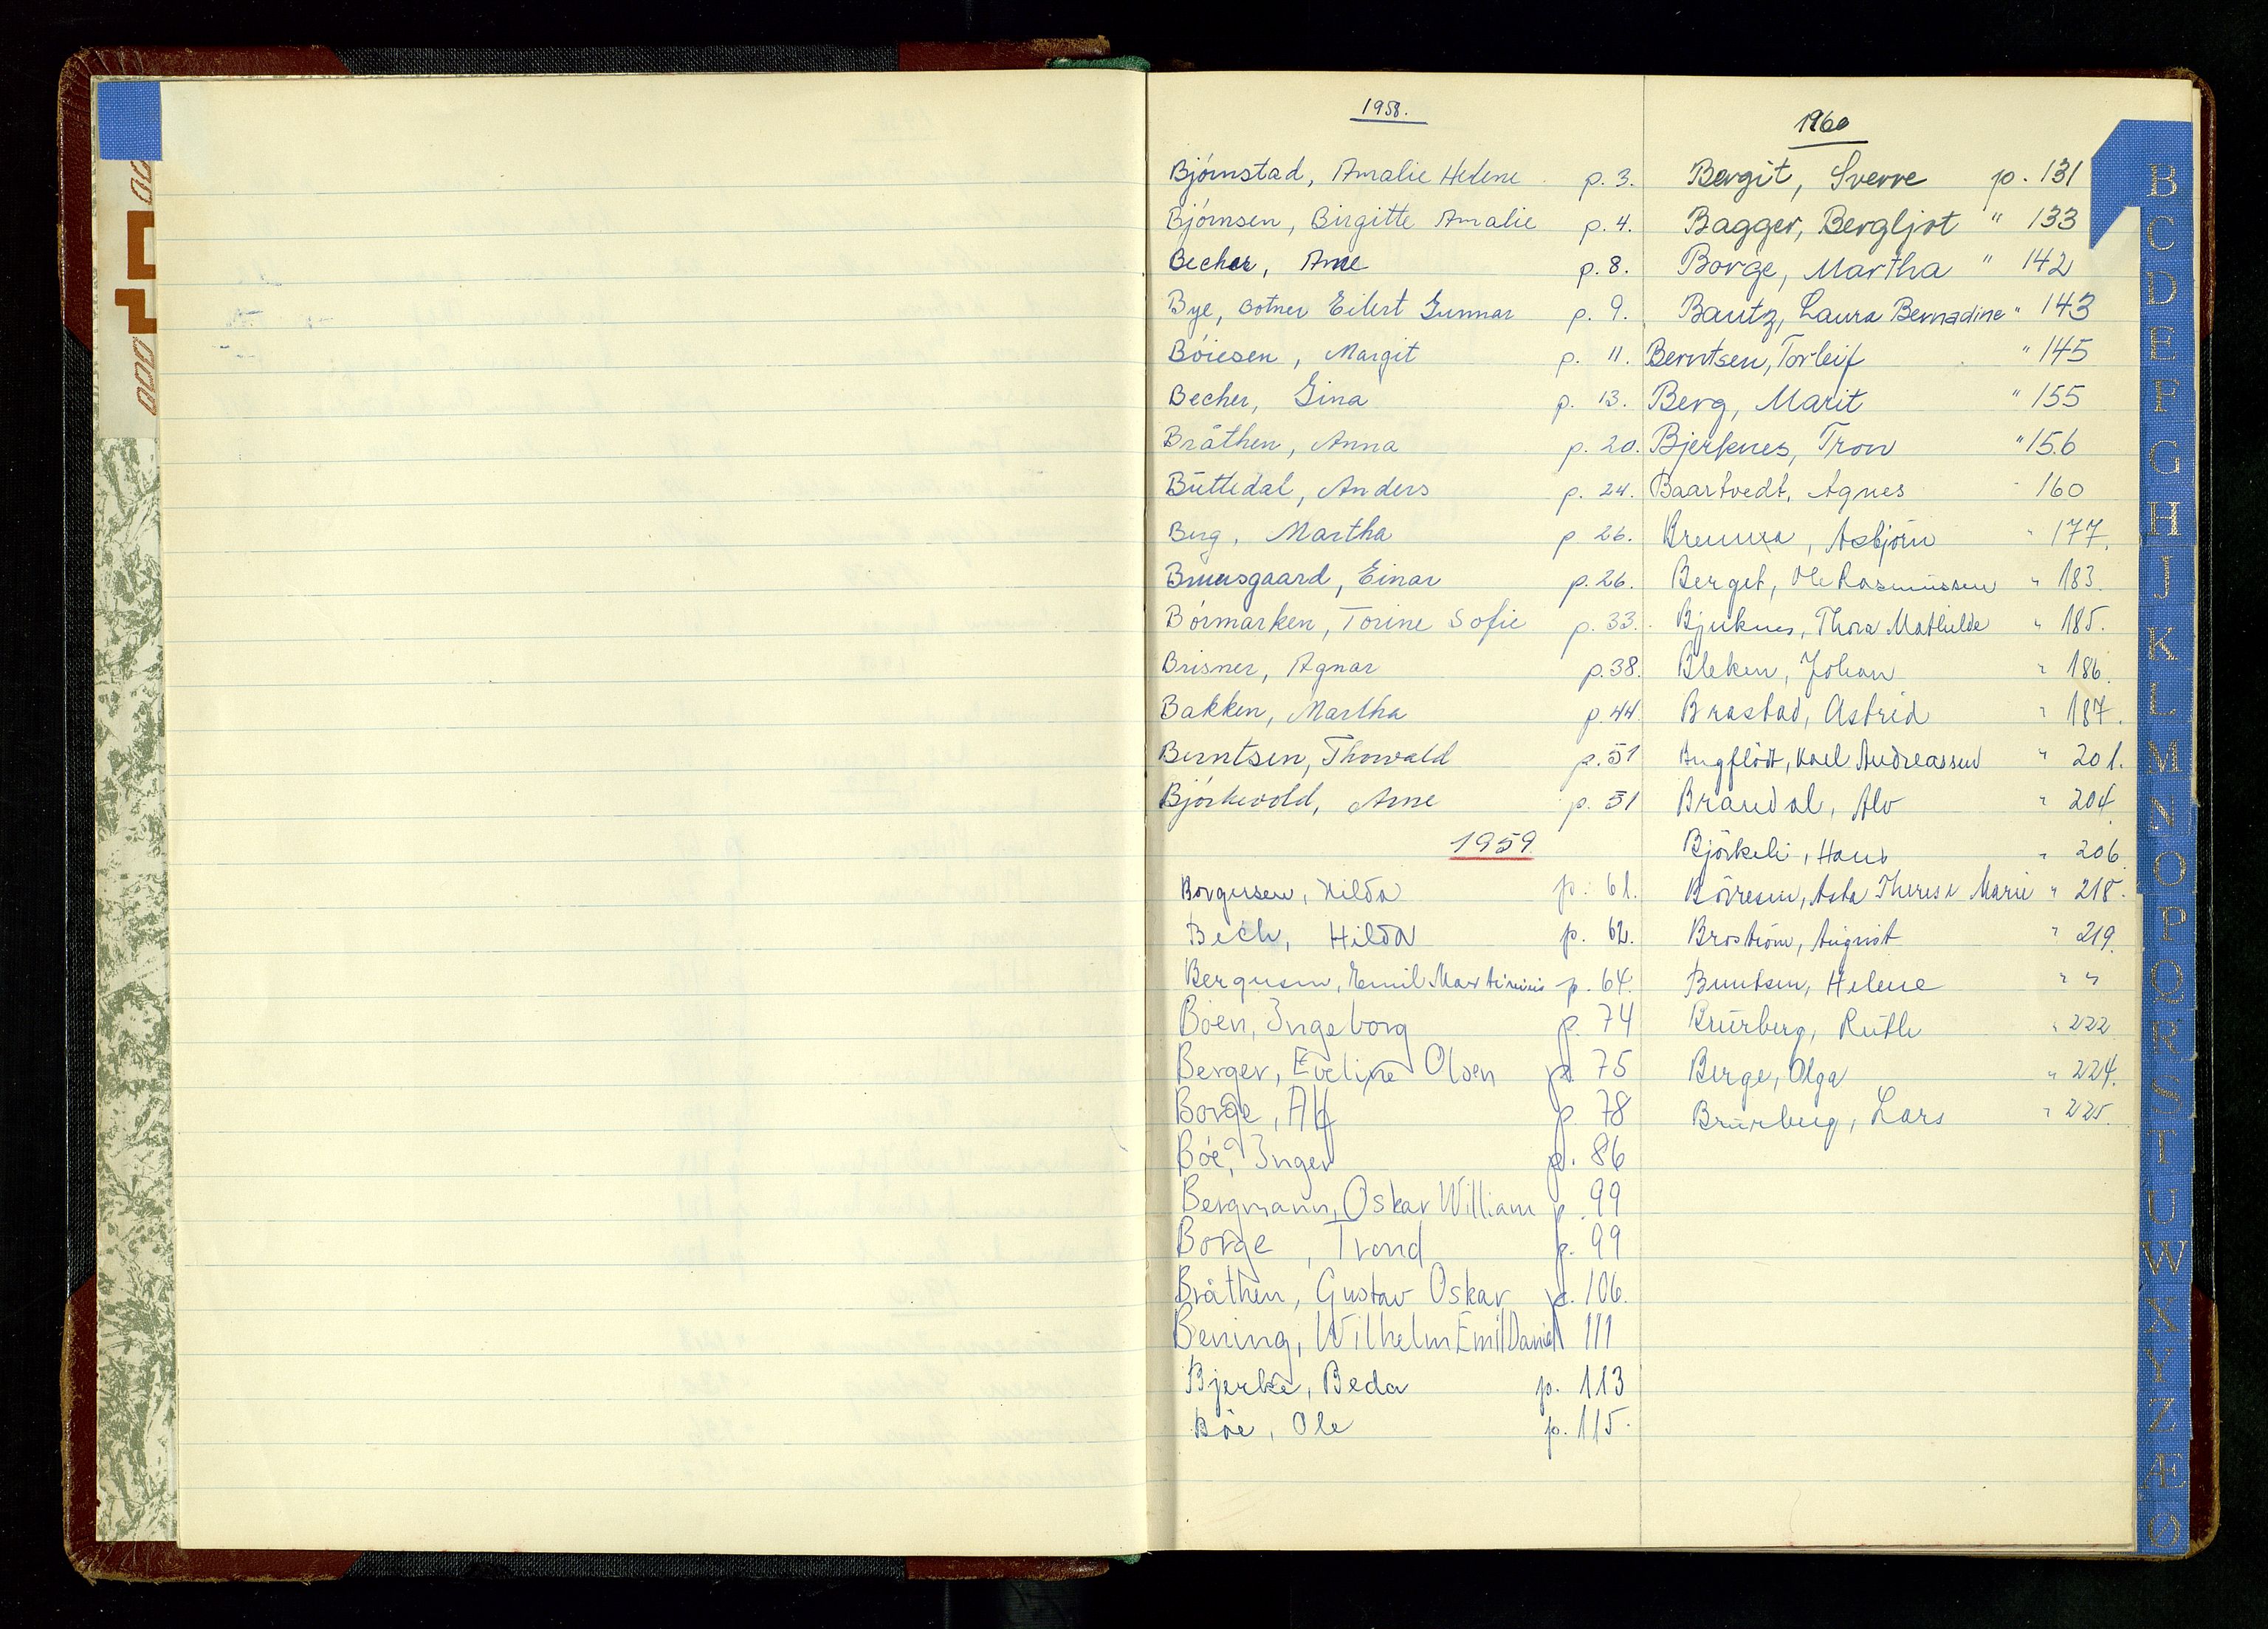 1958.
Bjórnstad, Amalie Helene p. 3.
Bjórnsen, Birgitte Amalie p. 4.
Becher, Arne p. 8.
Bye, Eilert Gunnar p. 9.
Bóiesen, Margit p. 11.
Becher, Gina p. 13.
Bråthen, Anna p. 20.
Büttedal, Anders p. 24.
Berg, Martha p 26.
Bruusgaard, Einar p. 26.
Bórmarken, Torine Sofie p. 33.
Brisner, Agnar p. 38.
Bakken, Martha p. 44.
Berntsen, Thorvald p. 51
Bjórkevold, Arne p. 51
1959
Borgersen, Hilda p. 61.
Bech, Hilda p. 62.
Bergersen, Emil Martinius p. 64.
Bóen, Ingeborg p. 74
Berger, Eveline Olsen p. 75
Borge, Alf p. 78
Bóe, Inger p. 86
Bergmann, Oskar William p. 99
Borge, Trond p. 99
Bråthen, Gustav Oskar p. 106.
Bening, Wilhelm Emil Daniel 111
Bjerke, Beda p. 113
Böe, Ole p. 115.
1960
Bergit, Sverre p. 131
Bagger, Bergljot " 133
Borge, Martha " 142
Bautz, Laura Bernadine " 143
Berntsen, Torleif " 145
Berg, Marit " 155
Bjerknes, Tron " 156
Baartvedt, Agnes " 160
Brenna, Asbjörn " 177.
Berget, Ole Rasmüssen " 183.
Bjerknes, Thora Mathilde " 185.
Bleken, Johan " 186.
Brastad, Astrid " 187.
Bergflödt, Karl Andreassen " 201.
Brandal, Alv " 204.
Björkeli, Hans " 206.
Börresen, Asta Therese Marie " 218.
Broström, Aügüst " 219.
Berntsen, Helene " "
Brürberg, Rüth " 222
Berge, Olga " 224.
Brürberg, Lars " 225.
B
C
D
E
F
G
H
J
K
L
M
N
O
P
Q
R
S
T
U
W
X
Y
Z
Æ
Ø